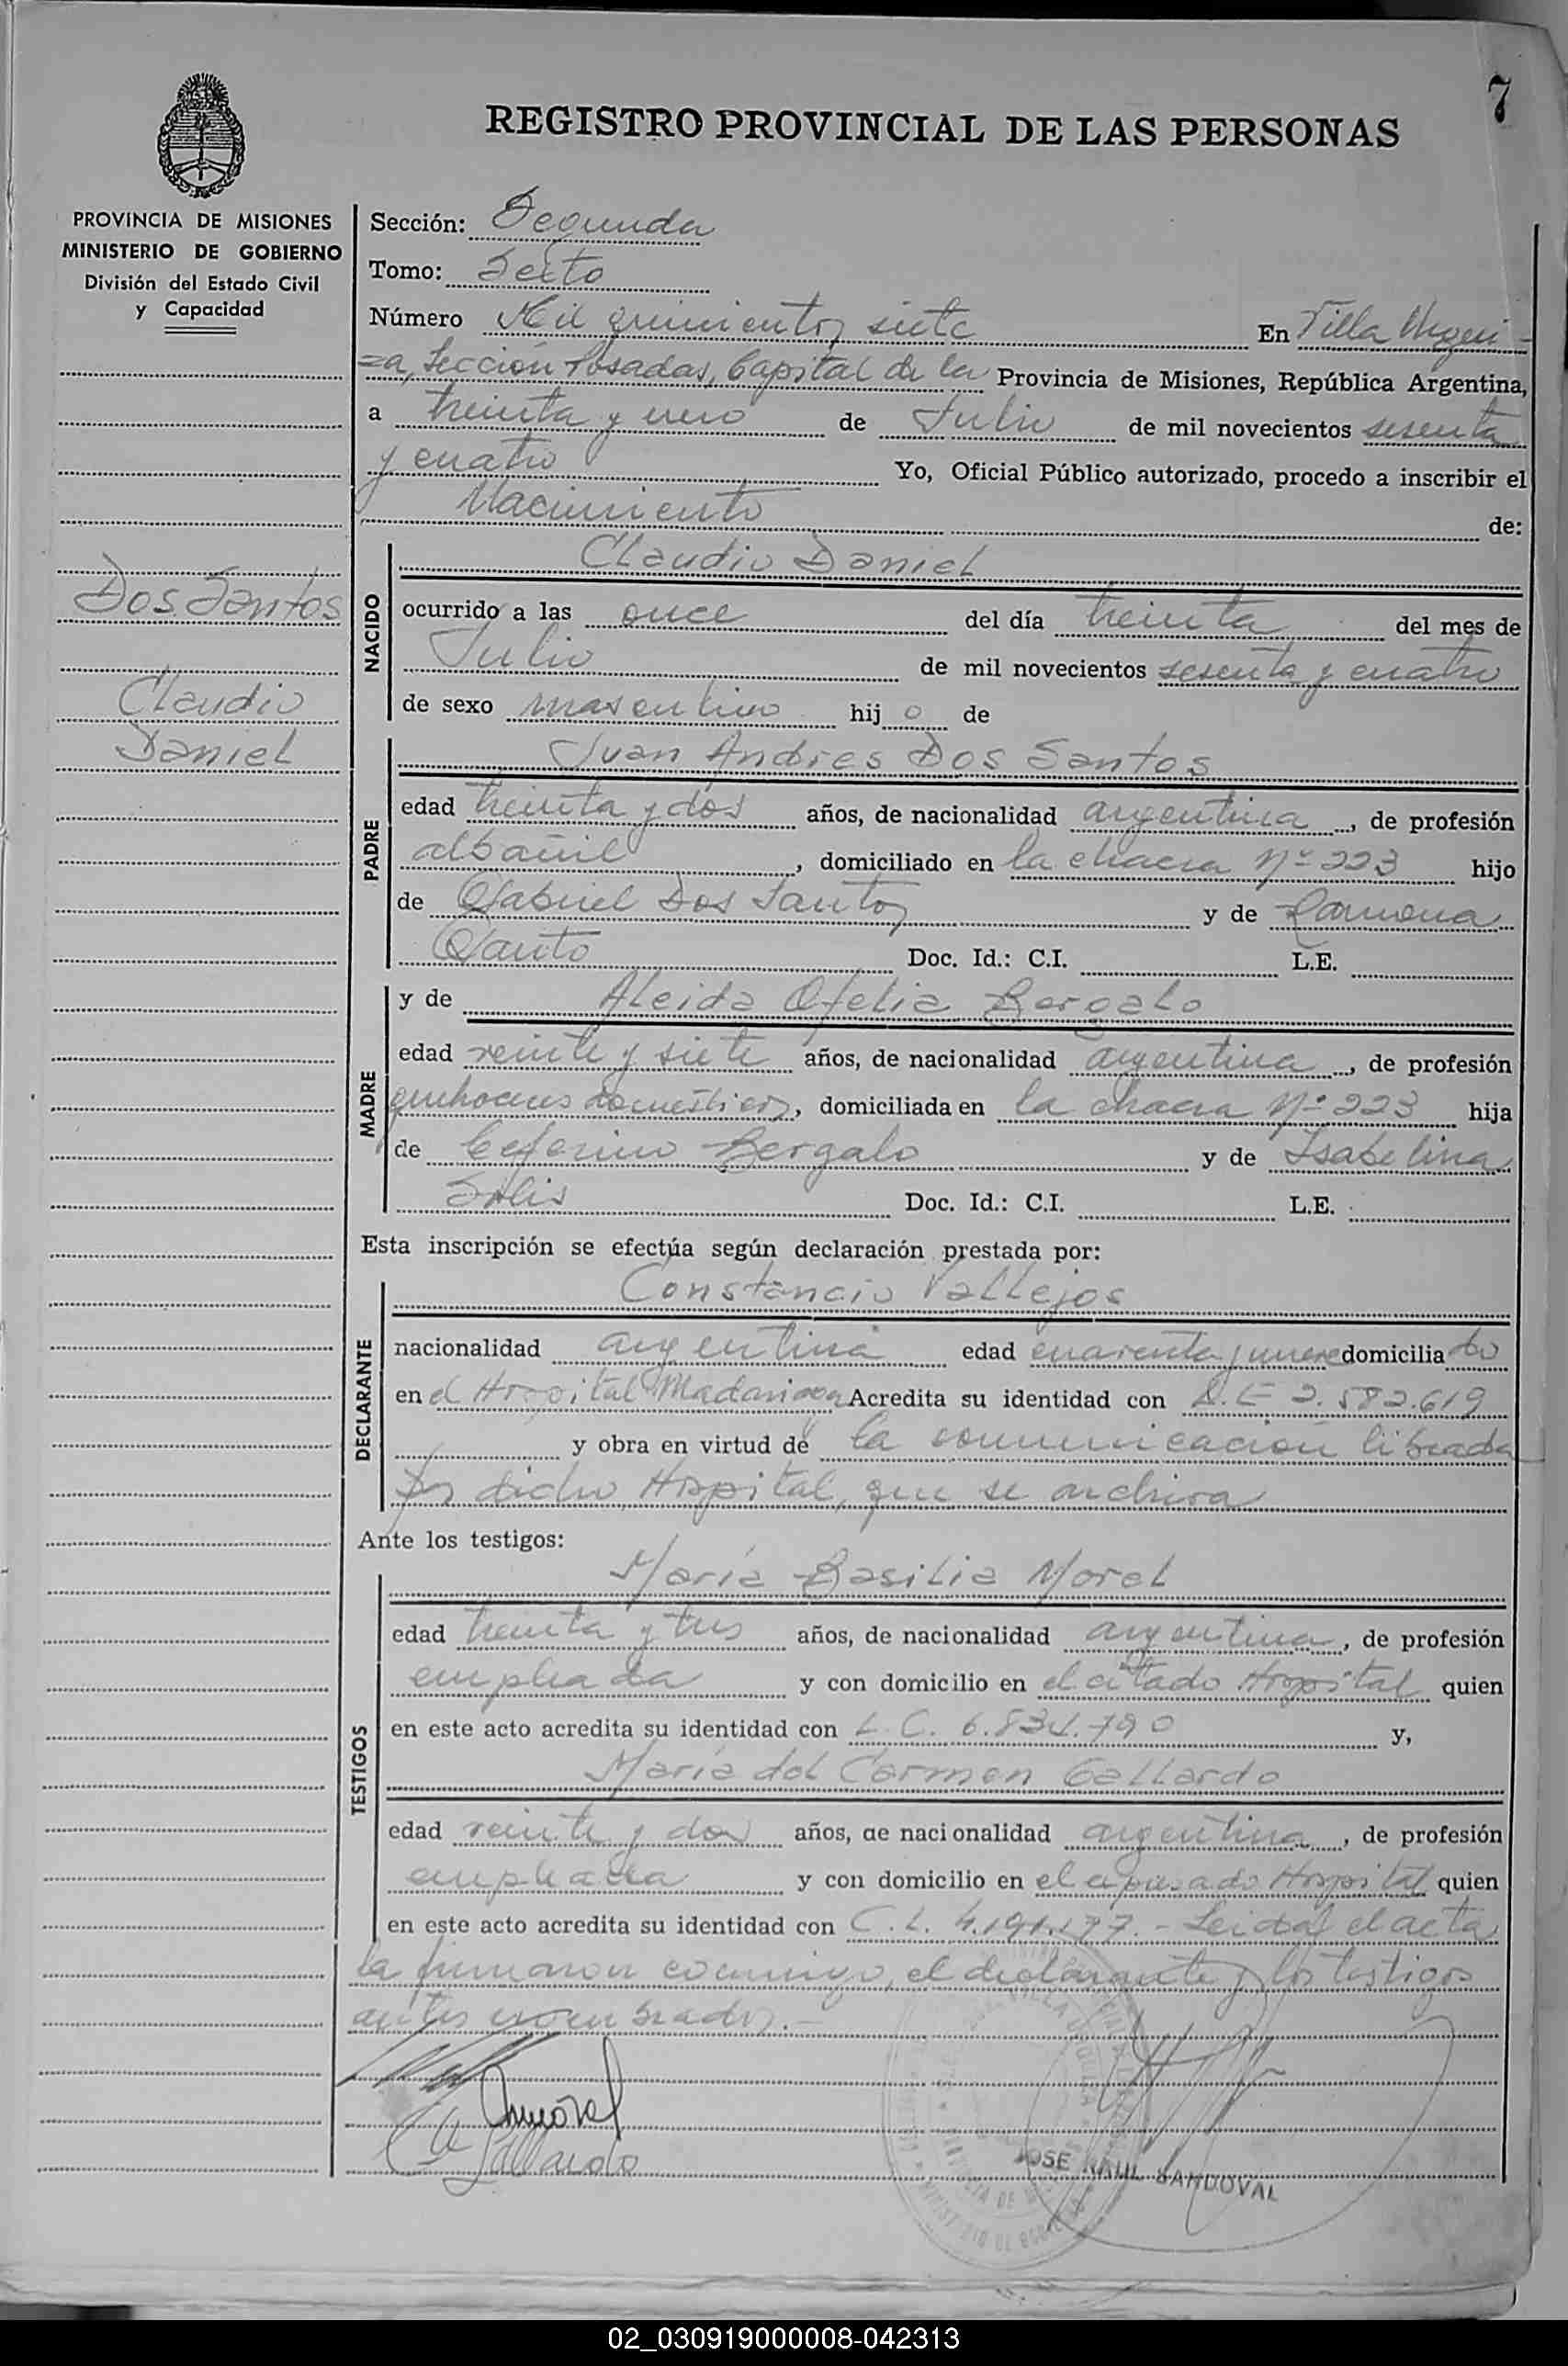 7
REGISTRO PROVINCIAL DE LAS PERSONAS
PROVINCIA DE MISIONES
MINISTERIO DE GOBIERNO
División del Estado Civil
y Capacidad
Dos Santos
Claudio
Daniel
Sección: Segunda
Tomo: Sexto
Número Mil quinientos siete En Villa Urqui-
za, Sección Posadas, Capital de la Provincia de Misiones, República Argentina,
a treinta y uno de Julio de mil novecientos sesenta
y cuatro Yo, Oficial Público autorizado, procedo a inscribir el
Nacimiento de:
NACIDO
Claudio Daniel
ocurrido a las once del día treinta del mes de
Julio de mil novecientos sesenta y cuatro
de sexo masculino hijo de
PADRE
Juan Andres Dos Santos
edad treinta y dos años, de nacionalidad argentina, de profesión
albañil, domiciliado en la chacra Nº 223 hijo
de Gabriel Dos Santos y de Ramona
Doc. Id.: C.I. L.E.
MADRE
y de Aleida Ofelia Bergalo
edad veinte y siete años, de nacionalidad argentina, de profesión
quehaceres domesticos, domiciliada en la chacra Nº 223 hija
de Ceferino Bergalo y de Isabelina
Solis Doc. Id.: C.I. L.E.
Esta inscripción se efectúa según declaración prestada por:
DECLARANTE
Constancio Vallejos
nacionalidad argentina edad cuarenta y nueve domiciliado
en el Hospital Madariaga Acredita su identidad con L.E 2.582.619
y obra en virtud de la comunicación librada
por dicho Hospital, que se archiva
Ante los testigos:
TESTIGOS
María Basilia Morel
edad treinta y tres años, de nacionalidad argentina, de profesión
empleada y con domicilio en el citado Hospital quien
en este acto acredita su identidad con L.C. 6.834.790 y,
María del Carmen Gallardo
edad veinte y dos años, de nacionalidad argentina, de profesión
empleada y con domicilio en el expresado Hospital quien
en este acto acredita su identidad con C.L. 4.191.177.- Leida el acta
la firmaron conmigo, el declarante y los testigos
antes nombrados.-
Morel
Gallardo
JOSE RAUL SANDOVAL
02_030919000008-042313